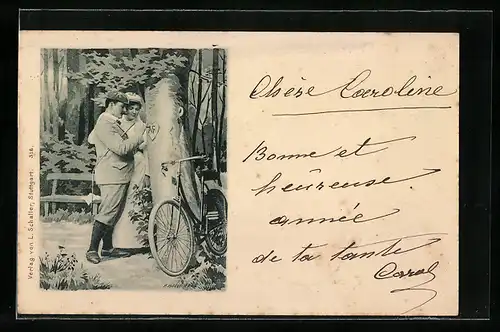 Chère Caroline
Bonne et
heureuse
année
de ta tante
Carol
Verlag von L. Schaller, Stuttgart. 318.